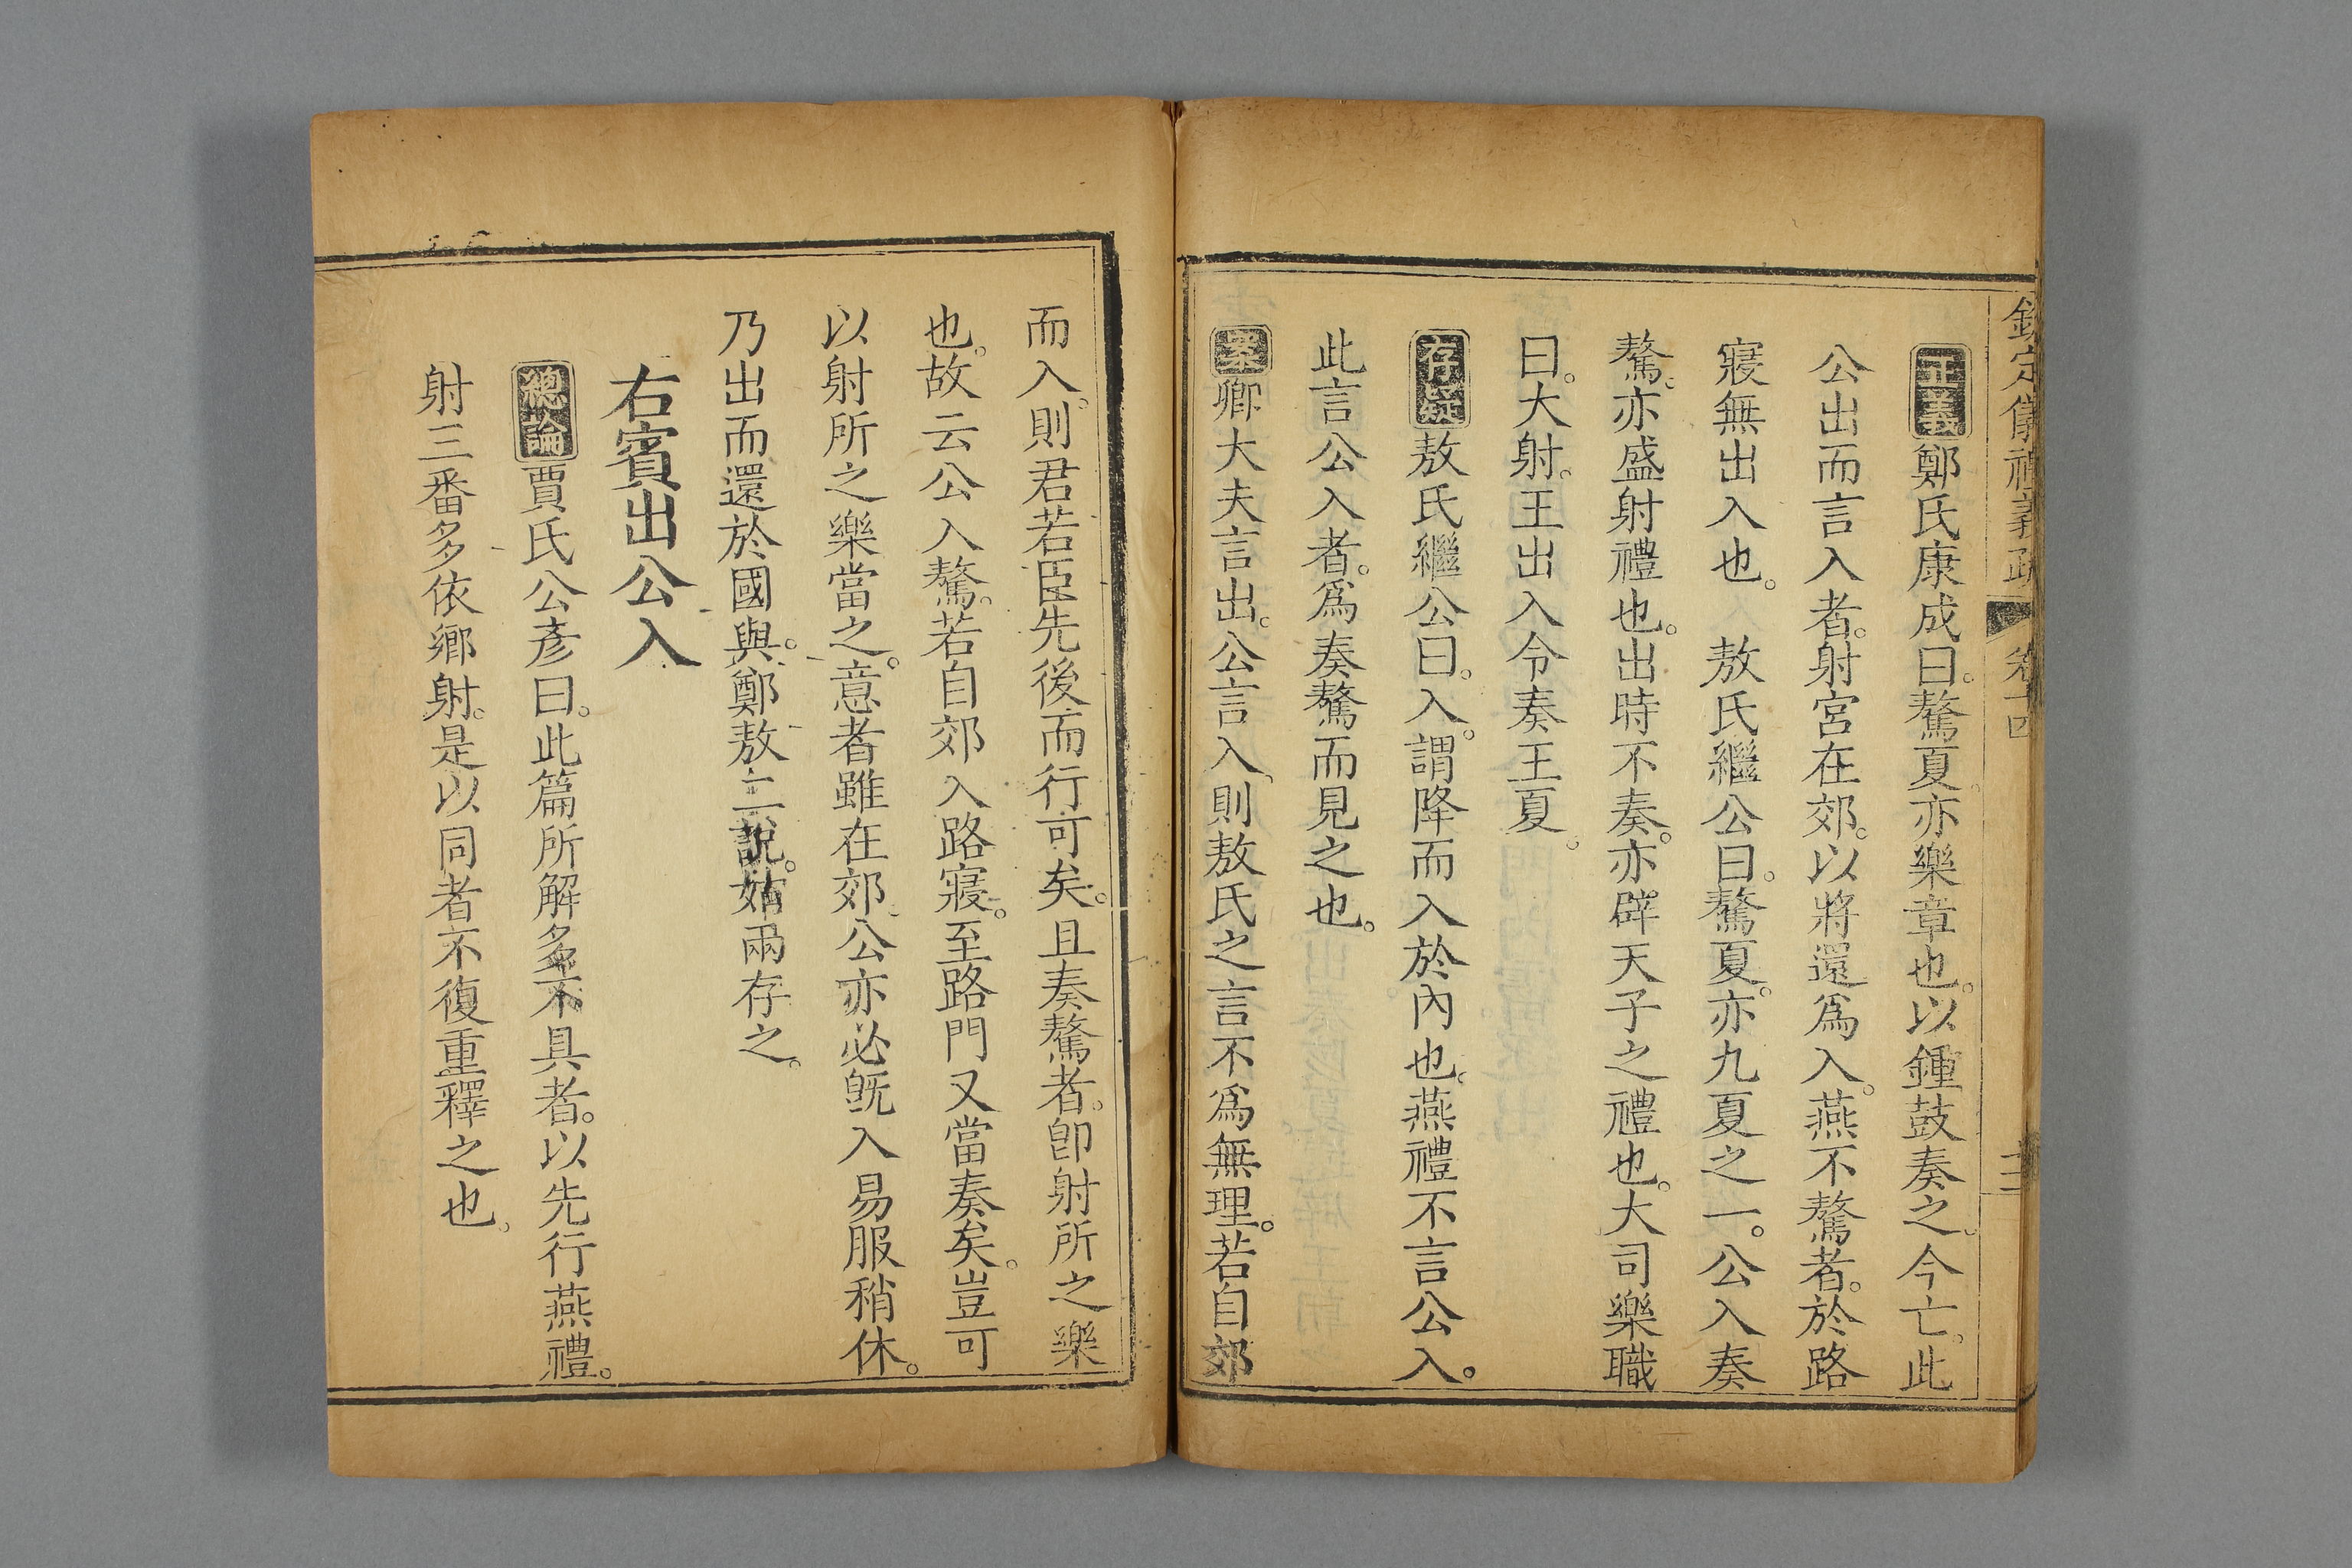 欽定儀禮義疏 卷十四
正義鄭氏康成曰。驁夏亦樂章也。以鍾鼓奏之。今亡。此
公出而言入者。射宮在郊。以將還爲入。燕不驁者。於路
寢無出入也。 敖氏繼公曰。驁夏。亦九夏之一。公入奏
驁。亦盛射禮也。出時不奏。亦辟天子之禮也。大司樂職
曰。大射。王出入令奏王夏。
存疑敖氏繼公曰。入。謂降而入於內也。燕禮不言公入。
此言公入者。爲奏驁而見之也。
案卿大夫言出。公言入。則敖氏之言不爲無理。若自郊
而入。則君若臣先後而行可矣。且奏驁者。卽射所之樂
也。故云公入驁。若自郊入路寢。至路門又當奏矣。豈可
以射所之樂當之。意者雖在郊。公亦必旣入易服稍休。
乃出而還於國與。鄭敖二說。姑兩存之。
右賓出公入
總論賈氏公彥曰。此篇所解多不具者。以先行燕禮。
射三番多依鄉射。是以同者不復重釋之也。